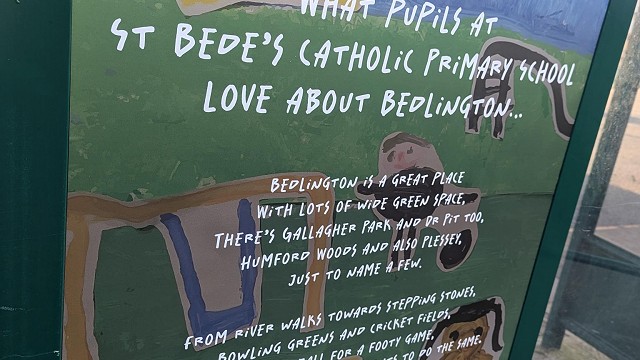 WHAT PUPILS AT
ST BEDE'S CATHOLIC PRIMARY SCHOOL
LOVE ABOUT BEDLINGTON...
BEDLINGTON IS A GREAT PLACE
WITH LOTS OF WIDE GREEN SPACE,
THERE'S GALLAGHER PARK AND DR PIT TOO,
HUMFORD WOODS AND ALSO PLESSEY,
JUST TO NAME A FEW.
FROM RIVER WALKS TOWARDS STEPPING STONES,
BOWLING GREENS AND CRICKET FIELDS,
FOR A FOOTY GAME,
TO DO THE SAME.